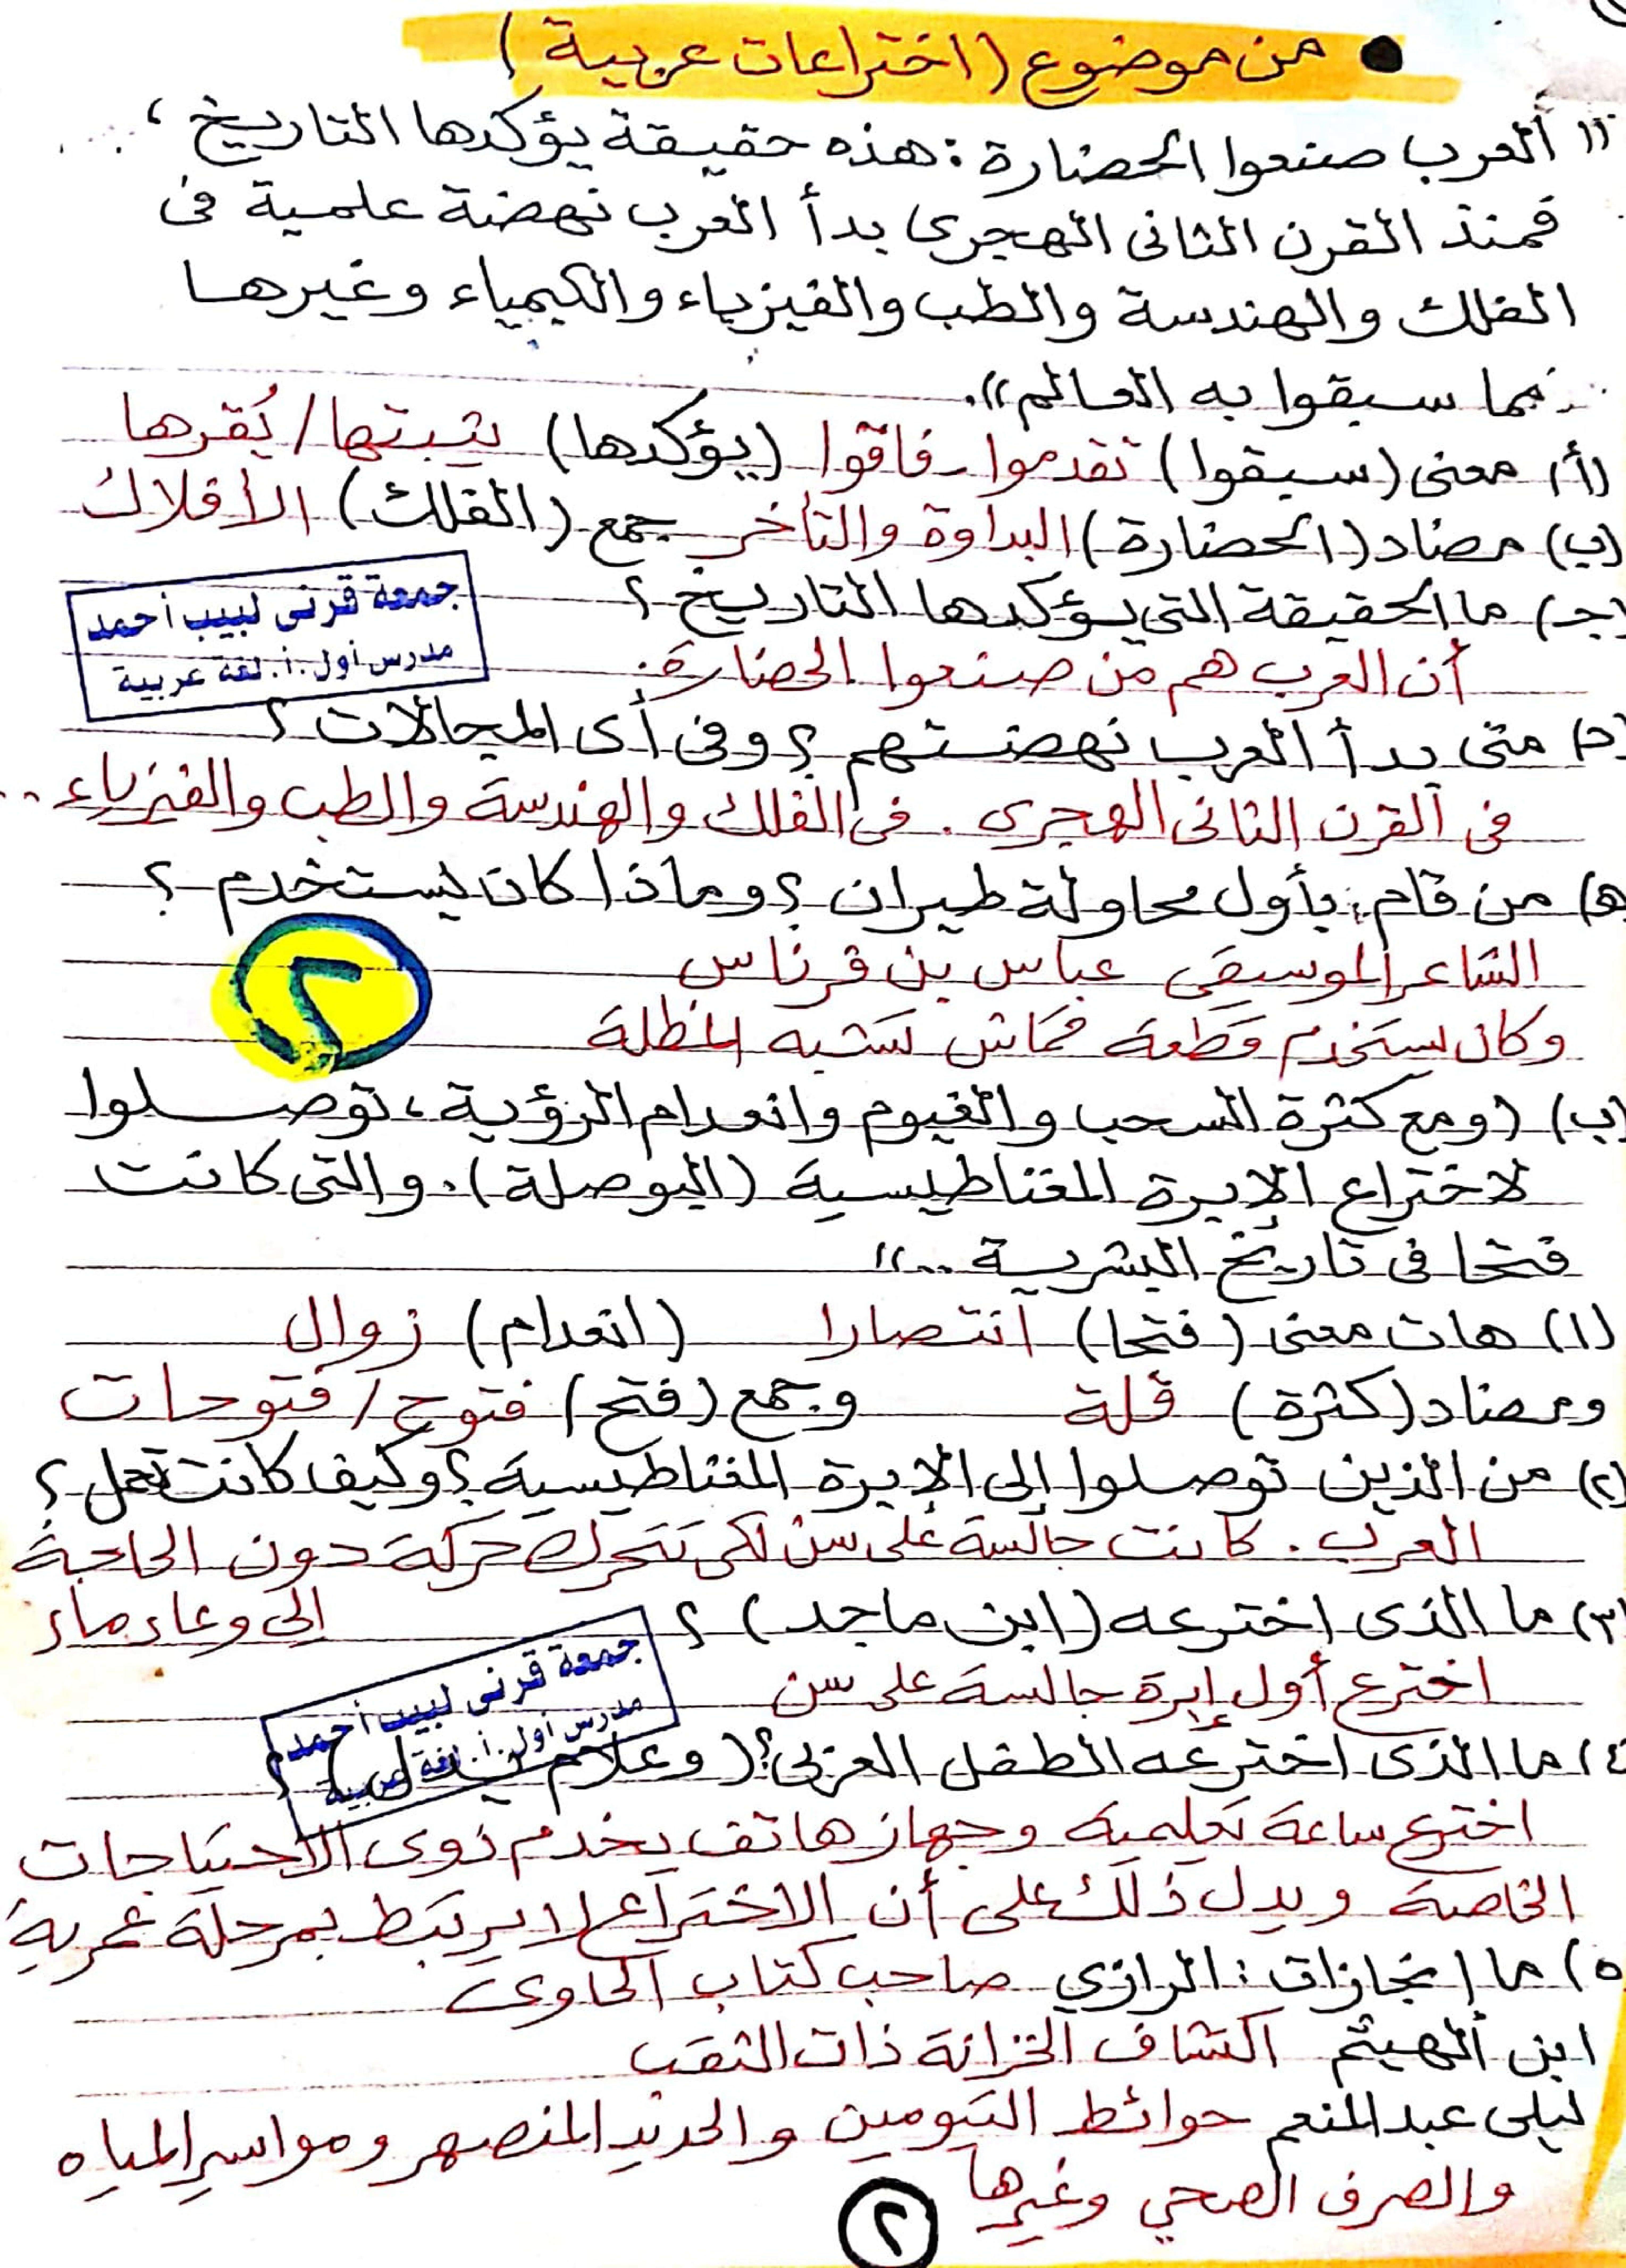 ● من موضوع (اختراعات عربية)
"العرب صنعوا الحضارة: هذه حقيقة يؤكدها التاريخ،
فمنذ القرن الثانى الهجرى بدأ العرب نهضة علمية فى
الفلك والهندسة والطب والفيزياء والكيمياء وغيرها
مما سبقوا به العالم".
(أ) معنى (سبقوا) تقدموا - فاقوا (يؤكدها) يثبتها / يُقرها
(ب) مضاد (الحضارة) البداوة والتأخر جمع (الفلك) الأفلاك
(جـ) ما الحقيقة التى يؤكدها التاريخ؟
جمعة قرنى لبيب أحمد
مدرس أول. أ. لغة عربية
أن العرب هم من صنعوا الحضارة.
(د) متى بدأ العرب نهضتهم؟ وفى أى المجالات؟
فى القرن الثانى الهجرى. فى الفلك والهندسة والطب والفيزياء..
(هـ) من قام بأول محاولة طيران؟ وماذا كان يستخدم؟
الشاعر الموسيقى عباس بن فرناس
وكان يستخدم قطعة قماش تشبه المظلة
٢
(ب) (ومع كثرة السحب والغيوم وانعدام الرؤية، توصلوا
لاختراع الإبرة المغناطيسية (البوصلة). والتى كانت
فتحا فى تاريخ البشرية .."
(١) هات معنى (فتحا) انتصارا (انعدام) زوال
ومضاد (كثرة) قلة وجمع (فتح) فتوح / فتوحات
(٢) من الذين توصلوا إلى الإبرة المغناطيسية؟ وكيف كانت تعمل؟
العرب. كانت جالسة على سن لكى تتحرك حركة دون الحاجة
إلى وعاء ماء
(٣) ما الذى اخترعه (ابن ماجد)؟
اخترع أول إبرة جالسة على سن
جمعة قرنى لبيب أحمد
مدرس أول. أ. لغة عربية
(٤) ما الذى اخترعه الطفل العربى؟ (وعلام يدل)؟
اخترع ساعة تعليمية وجهاز هاتف يخدم ذوى الاحتياجات
الخاصة ويدل ذلك على أن الاختراع لا يرتبط بمرحلة عمرية
(٥) ما إنجازات: الرازي صاحب كتاب الحاوى
ابن الهيثم اكتشاف الخزانة ذات الثقب
ليلى عبد المنعم حوائط البيومين والحديد المنصهر ومواسير المياه
والصرف الصحي وغيرها
٢